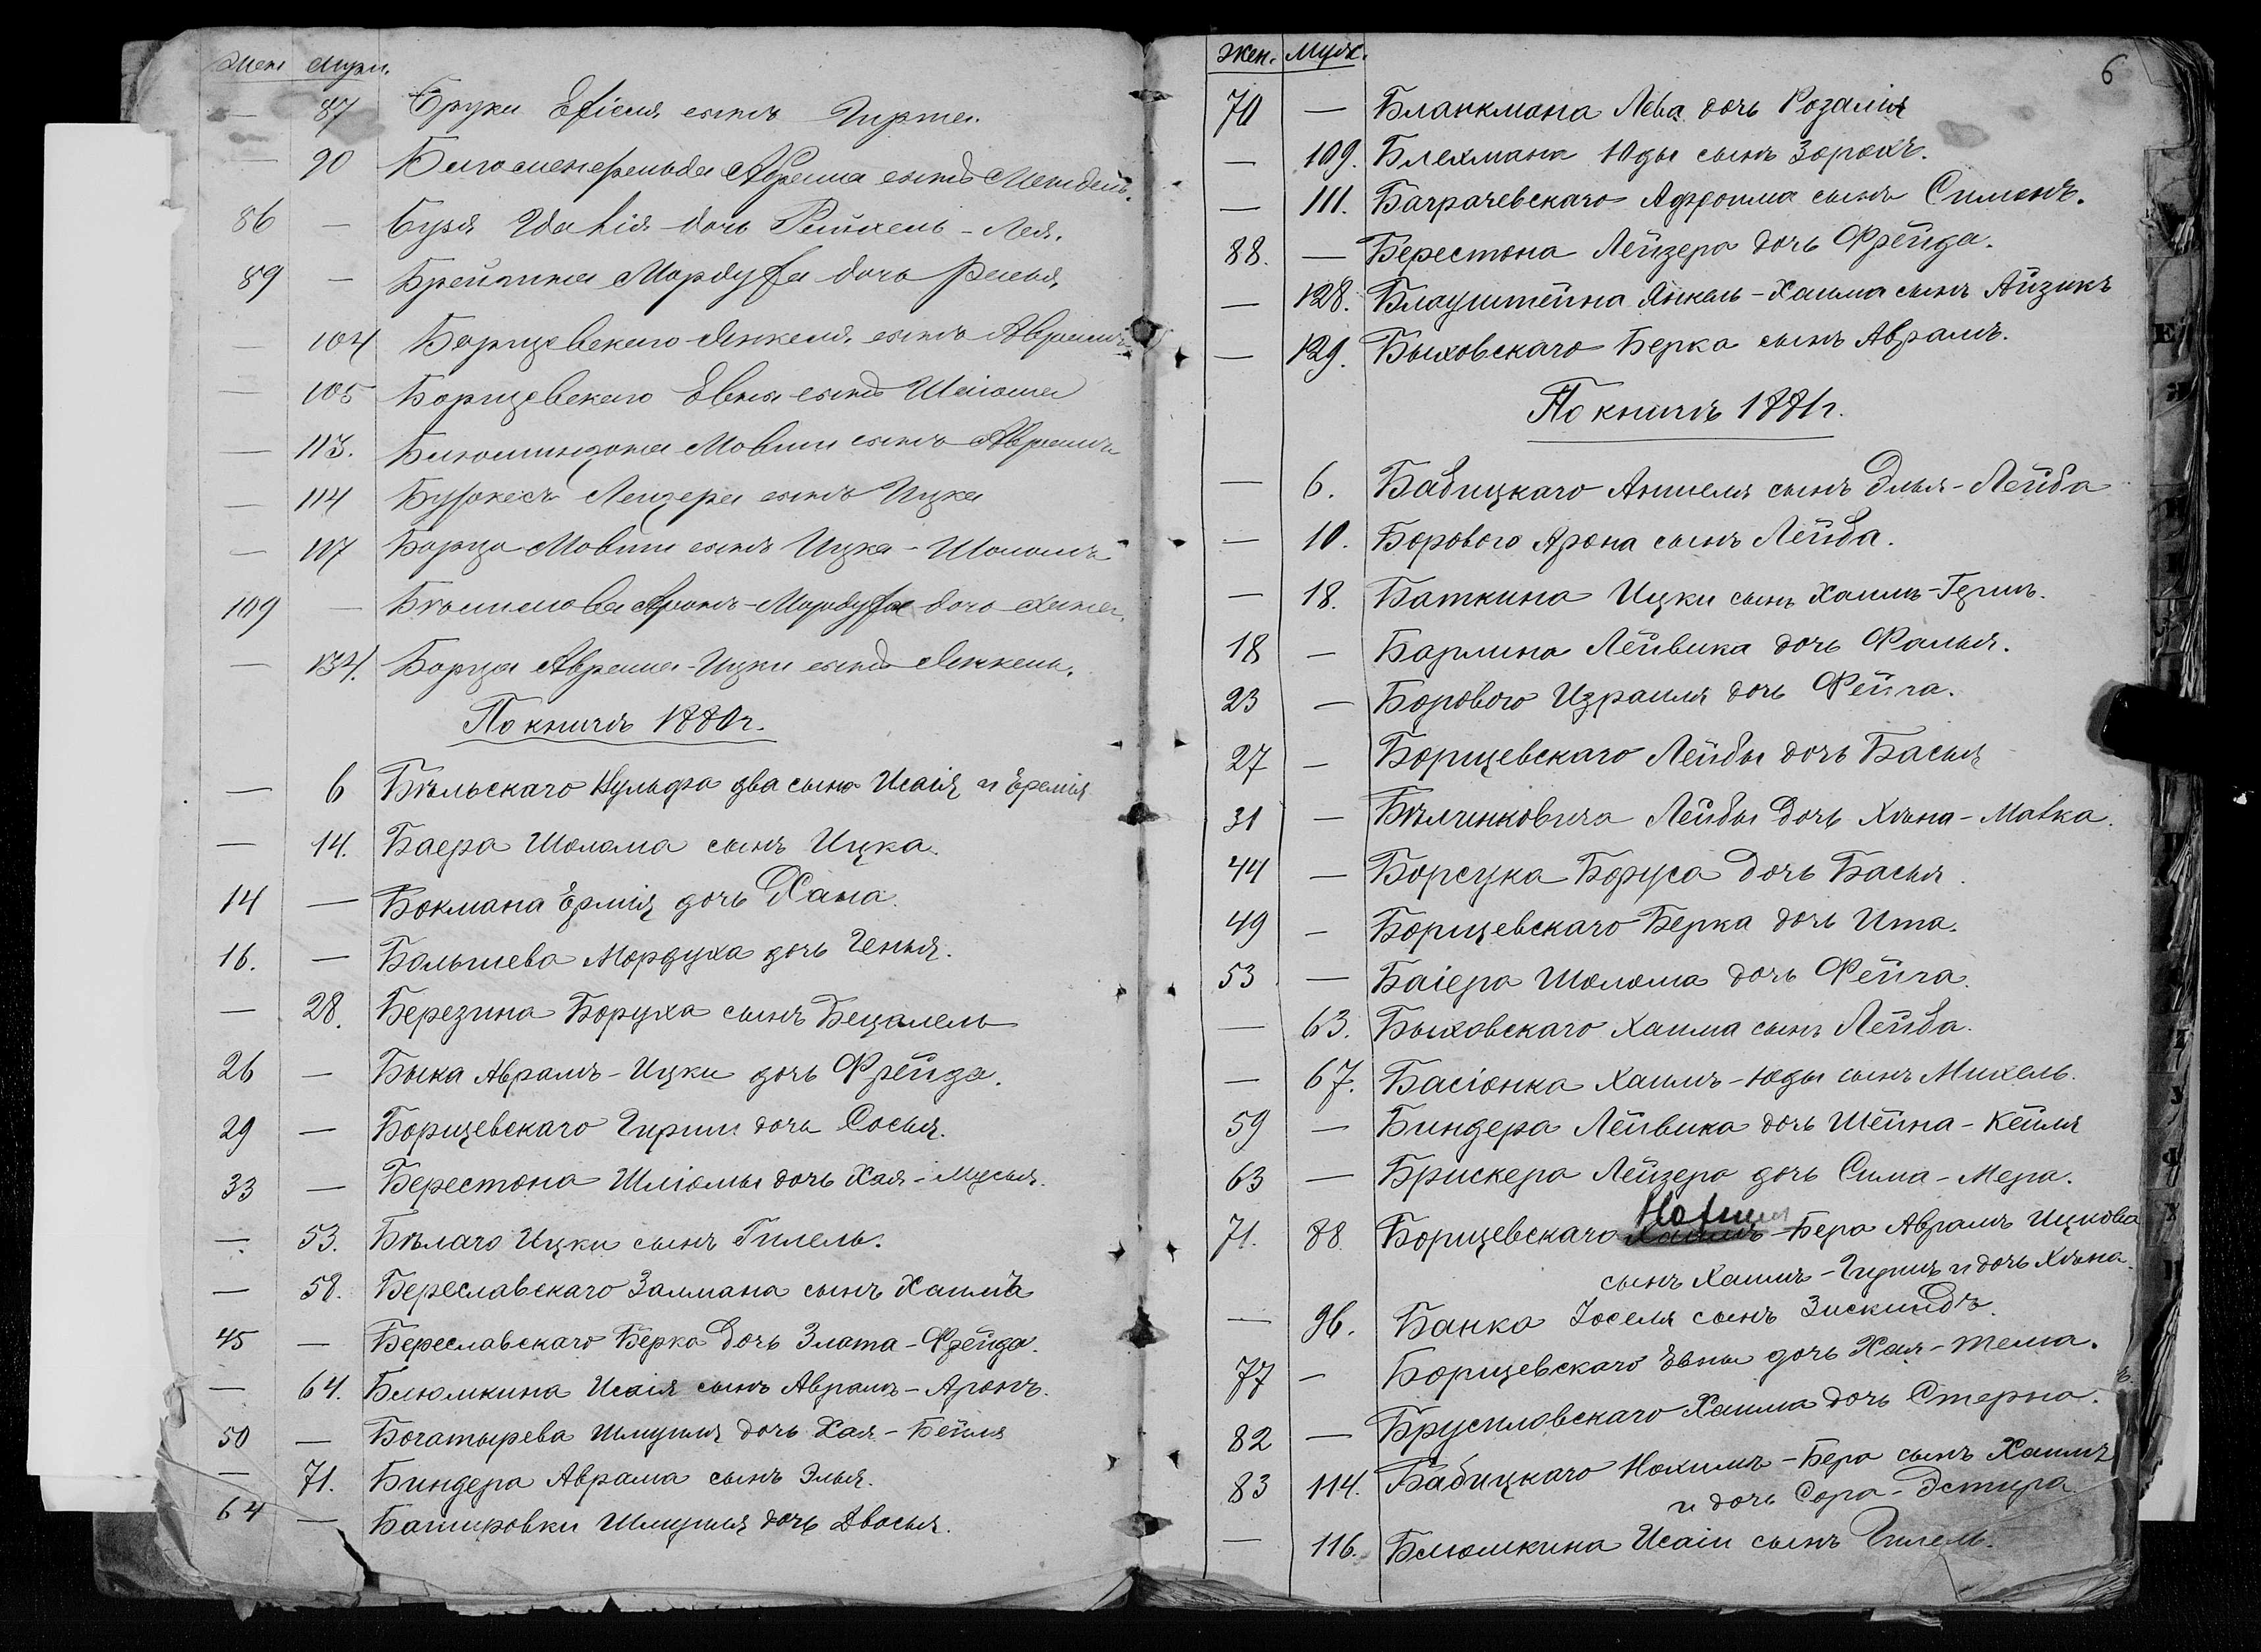 Жен Мужч.
— 87 Бруки сынъ Гирша.
— 90 Блюменфельда Абрама сынъ Мендель.
86 — дочь Рейхель - Лея.
89 — Мордуха дочь
— 104 Борщевскаго Янкеля сынъ Аврамъ
— 105 Борщевскаго Евны сынъ
— 113. Мовши сынъ Аврамъ
— 114 Лейзера сынъ Ицка
— 117 Борца Мовши сынъ Ицка - Шоломъ
109 — Аронъ-Мордуха дочь Хана.
— 134. Борца Аврама-Ицки сынъ Янкель.
По книгѣ 1880 г.
— 6 Бѣльскаго Вульфа два сына Исаія и Еремія
— 14. Баера Шолома сынъ Ицка.
14 — Бокмана Ермія дочь Хана.
16. — Болышева Мордуха дочь Генья.
— 28. Березина Боруха сынъ Бецалель
26 — Быка Аврамъ - Ицки дочь Фрейда.
29 — Борщевскаго Гирши дочь Сосья.
33 — Берестона Шліомы дочь Хая - Мусья.
— 53. Бѣлаго Ицки сынъ Гилель.
— 58. Береславскаго Залмана сынъ Хаимъ
45 — Береславскаго Берка дочь Злата - Фрейда.
— 64. Блюмкина Исаія сынъ Аврамъ - Аронъ.
50 — Богатырева Шмуиля дочь Хая - Бейля
— 71. Биндера Аврама сынъ Элья.
64 — Башировки Шмуиля дочь Двосья.
Жен. Муж.
6
70 — Бланкмана Лева дочь Розалія
— 109. Блехмана Юды сынъ Зорохъ.
— 111. Баграчевскаго Афроима сынъ Симонъ.
88. — Берестона Лейзера дочь Фрейда.
— 128. Блауштейна Янкель - Хаима сынъ Айзикъ
— 129. Быховскаго Берка сынъ Аврамъ.
По книгѣ 1881 г.
— 6. Бабицкаго Аншеля сынъ Элья - Лейба
— 10. Борового Арона сынъ Лейба.
— 18. Баткина Ицки сынъ Хаимъ - Гершъ.
18 — Барлина Лейвика дочь Фалья.
23 — Борового Израиля дочь Фейга.
27 — Борщевскаго Лейбы дочь Басья
31 — Бѣлинковича Лейбы дочь Хьена - Матка.
44 — Борсука Боруса дочь Басья.
49 — Борщевскаго Берка дочь Ита.
53 — Баіера Шолома дочь Фейга.
— 63. Быховскаго Хаима сынъ Лейба.
— 67. Басіонка Хаимъ - Юды сынъ Михель.
59 — Биндера Лейвика дочь Шейна - Кейля
63 — Брискера Лейзера дочь Сима - Мера.
71. 88. Борщевскаго Нохимъ - Бера Аврамъ Ицкова
сынъ Хаимъ - Гиршъ и дочь Хьена.
— 96. Банка Іоселя сынъ Зискиндъ.
77 — Борщевскаго Евны дочь Хая - Тема.
82 — Брусиловскаго Хаима дочь Стерна.
83 114. Бабицкаго Нохимъ - Бера сынъ Хаимъ
и дочь Сора - Эстира
— 116. Блюмкина Исаіи сынъ Гилель.